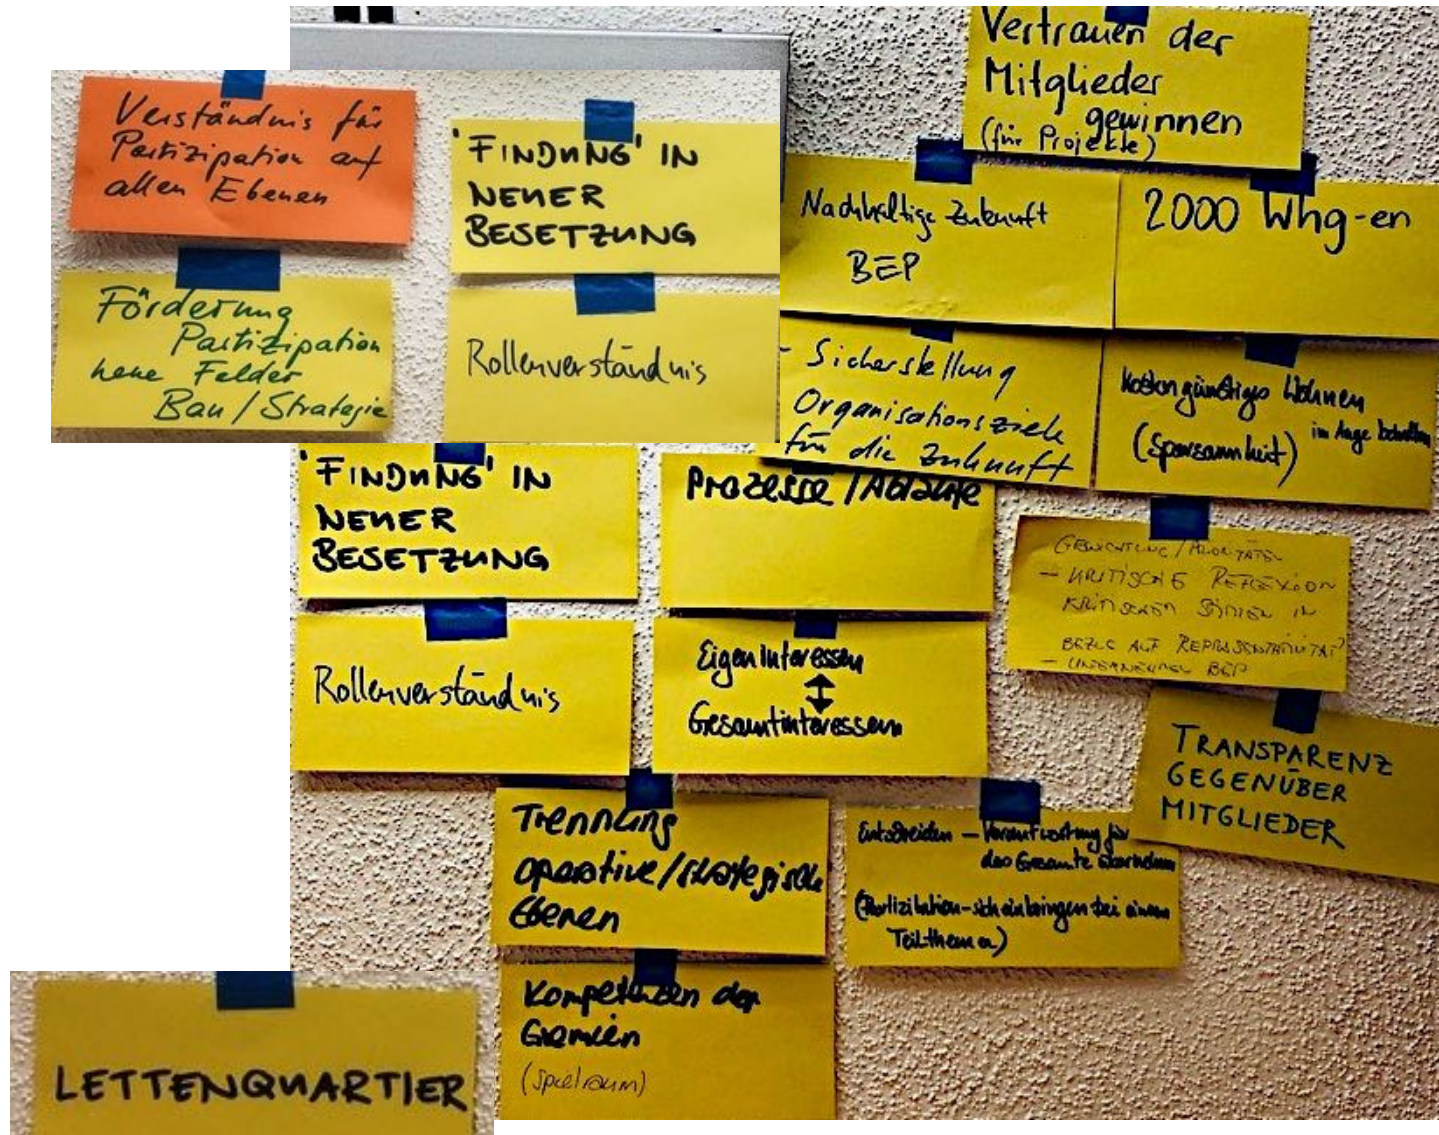 Verständnis für
Partizipation auf
allen Ebenen
'FINDUNG' IN
NEUER
BESETZUNG
Förderung
Partizipation
neue Felder
Bau/Strategie
Rollenverständnis
Vertrauen der
Mitglieder
gewinnen
(für Projekte)
Nachhaltige Zukunft
BEP
2000 Whg-en
- Sicherstellung
Organisationsziele
für die Zukunft
Kostengünstiges Wohnen
im Auge behalten
(Sparsamkeit)
'FINDUNG' IN
NEUER
BESETZUNG
Prozesse/Abläufe
GEWICHTUNG/PRIORITÄTEN
- KRITISCHE REFLEXION
KRITISCHER STIMMEN IN
BEZUG AUF REPRÄSENTATIVITÄT
- BEP
Rollenverständnis
Eigeninteressen
↕
Gesamtinteressen
TRANSPARENZ
GEGENÜBER
MITGLIEDER
Trennung
operative/strategische
Ebenen
Entscheiden – Verantwortung für
das Gesamte
(Partizipation – sich einbringen bei einem
Teilthema)
Kompetenzen der
Gremien
(Spielraum)
LETTENQUARTIER